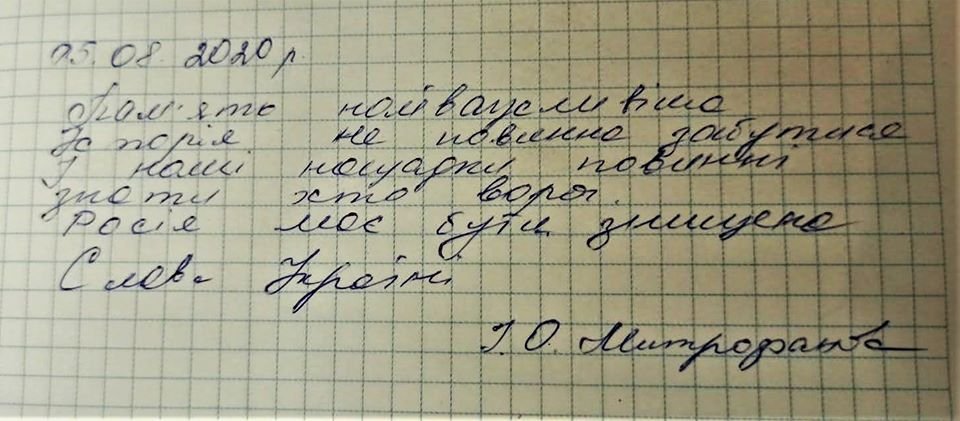 25.08.2020 р.
Пам'ять найважливіша
Історія не повинна забутися
І наші нащадки повинні
знати хто ворог.
Росія має бути знищена
Слава Україні
І. О. Митрофанова